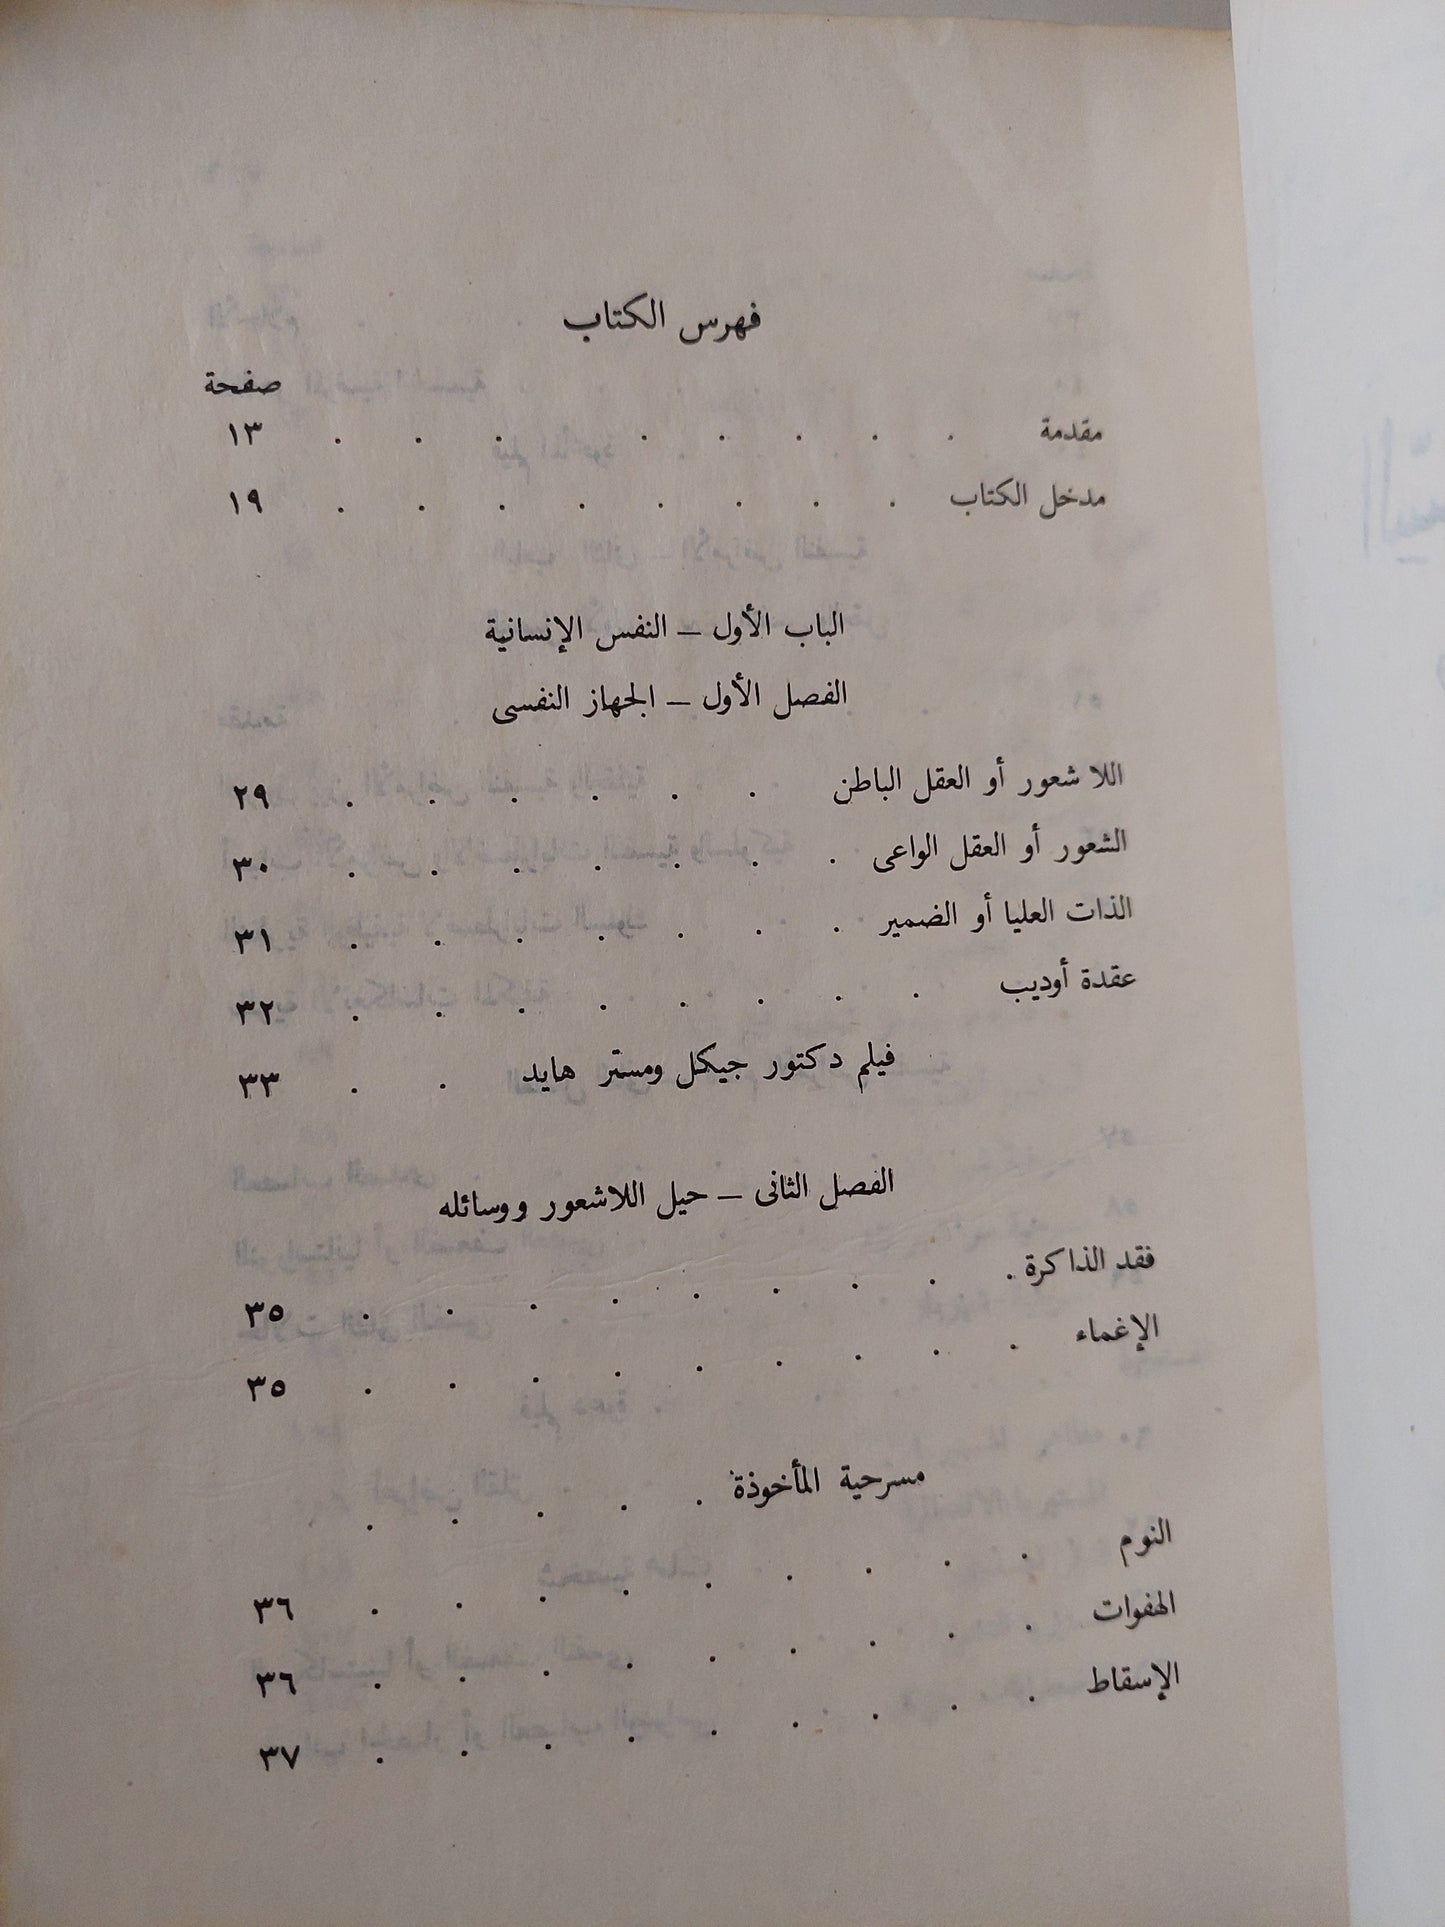 فهرس الكتاب
صفحة
مقدمة . . . . . . . . ١٣
مدخل الكتاب . . . . . . . . ١٩
الباب الأول – النفس الإنسانية
الفصل الأول – الجهاز النفسى
اللا شعور أو العقل الباطن . . . . . . ٢٩
الشعور أو العقل الواعى . . . . . . . ٣٠
الذات العليا أو الضمير . . . . . . . ٣١
عقدة أوديب . . . . . . . . ٣٢
فيلم دكتور جيكل ومستر هايد . . ٣٣
الفصل الثانى – حيل اللاشعور ووسائله
فقد الذاكرة . . . . . . . . . ٣٥
الإغماء . . . . . . . . . ٣٥
مسرحية المأخوذة . . . . .
النوم . . . . . . . . . ٣٦
الهفوات . . . . . . . . . ٣٦
الإسقاط . . . . . . . . . ٣٧